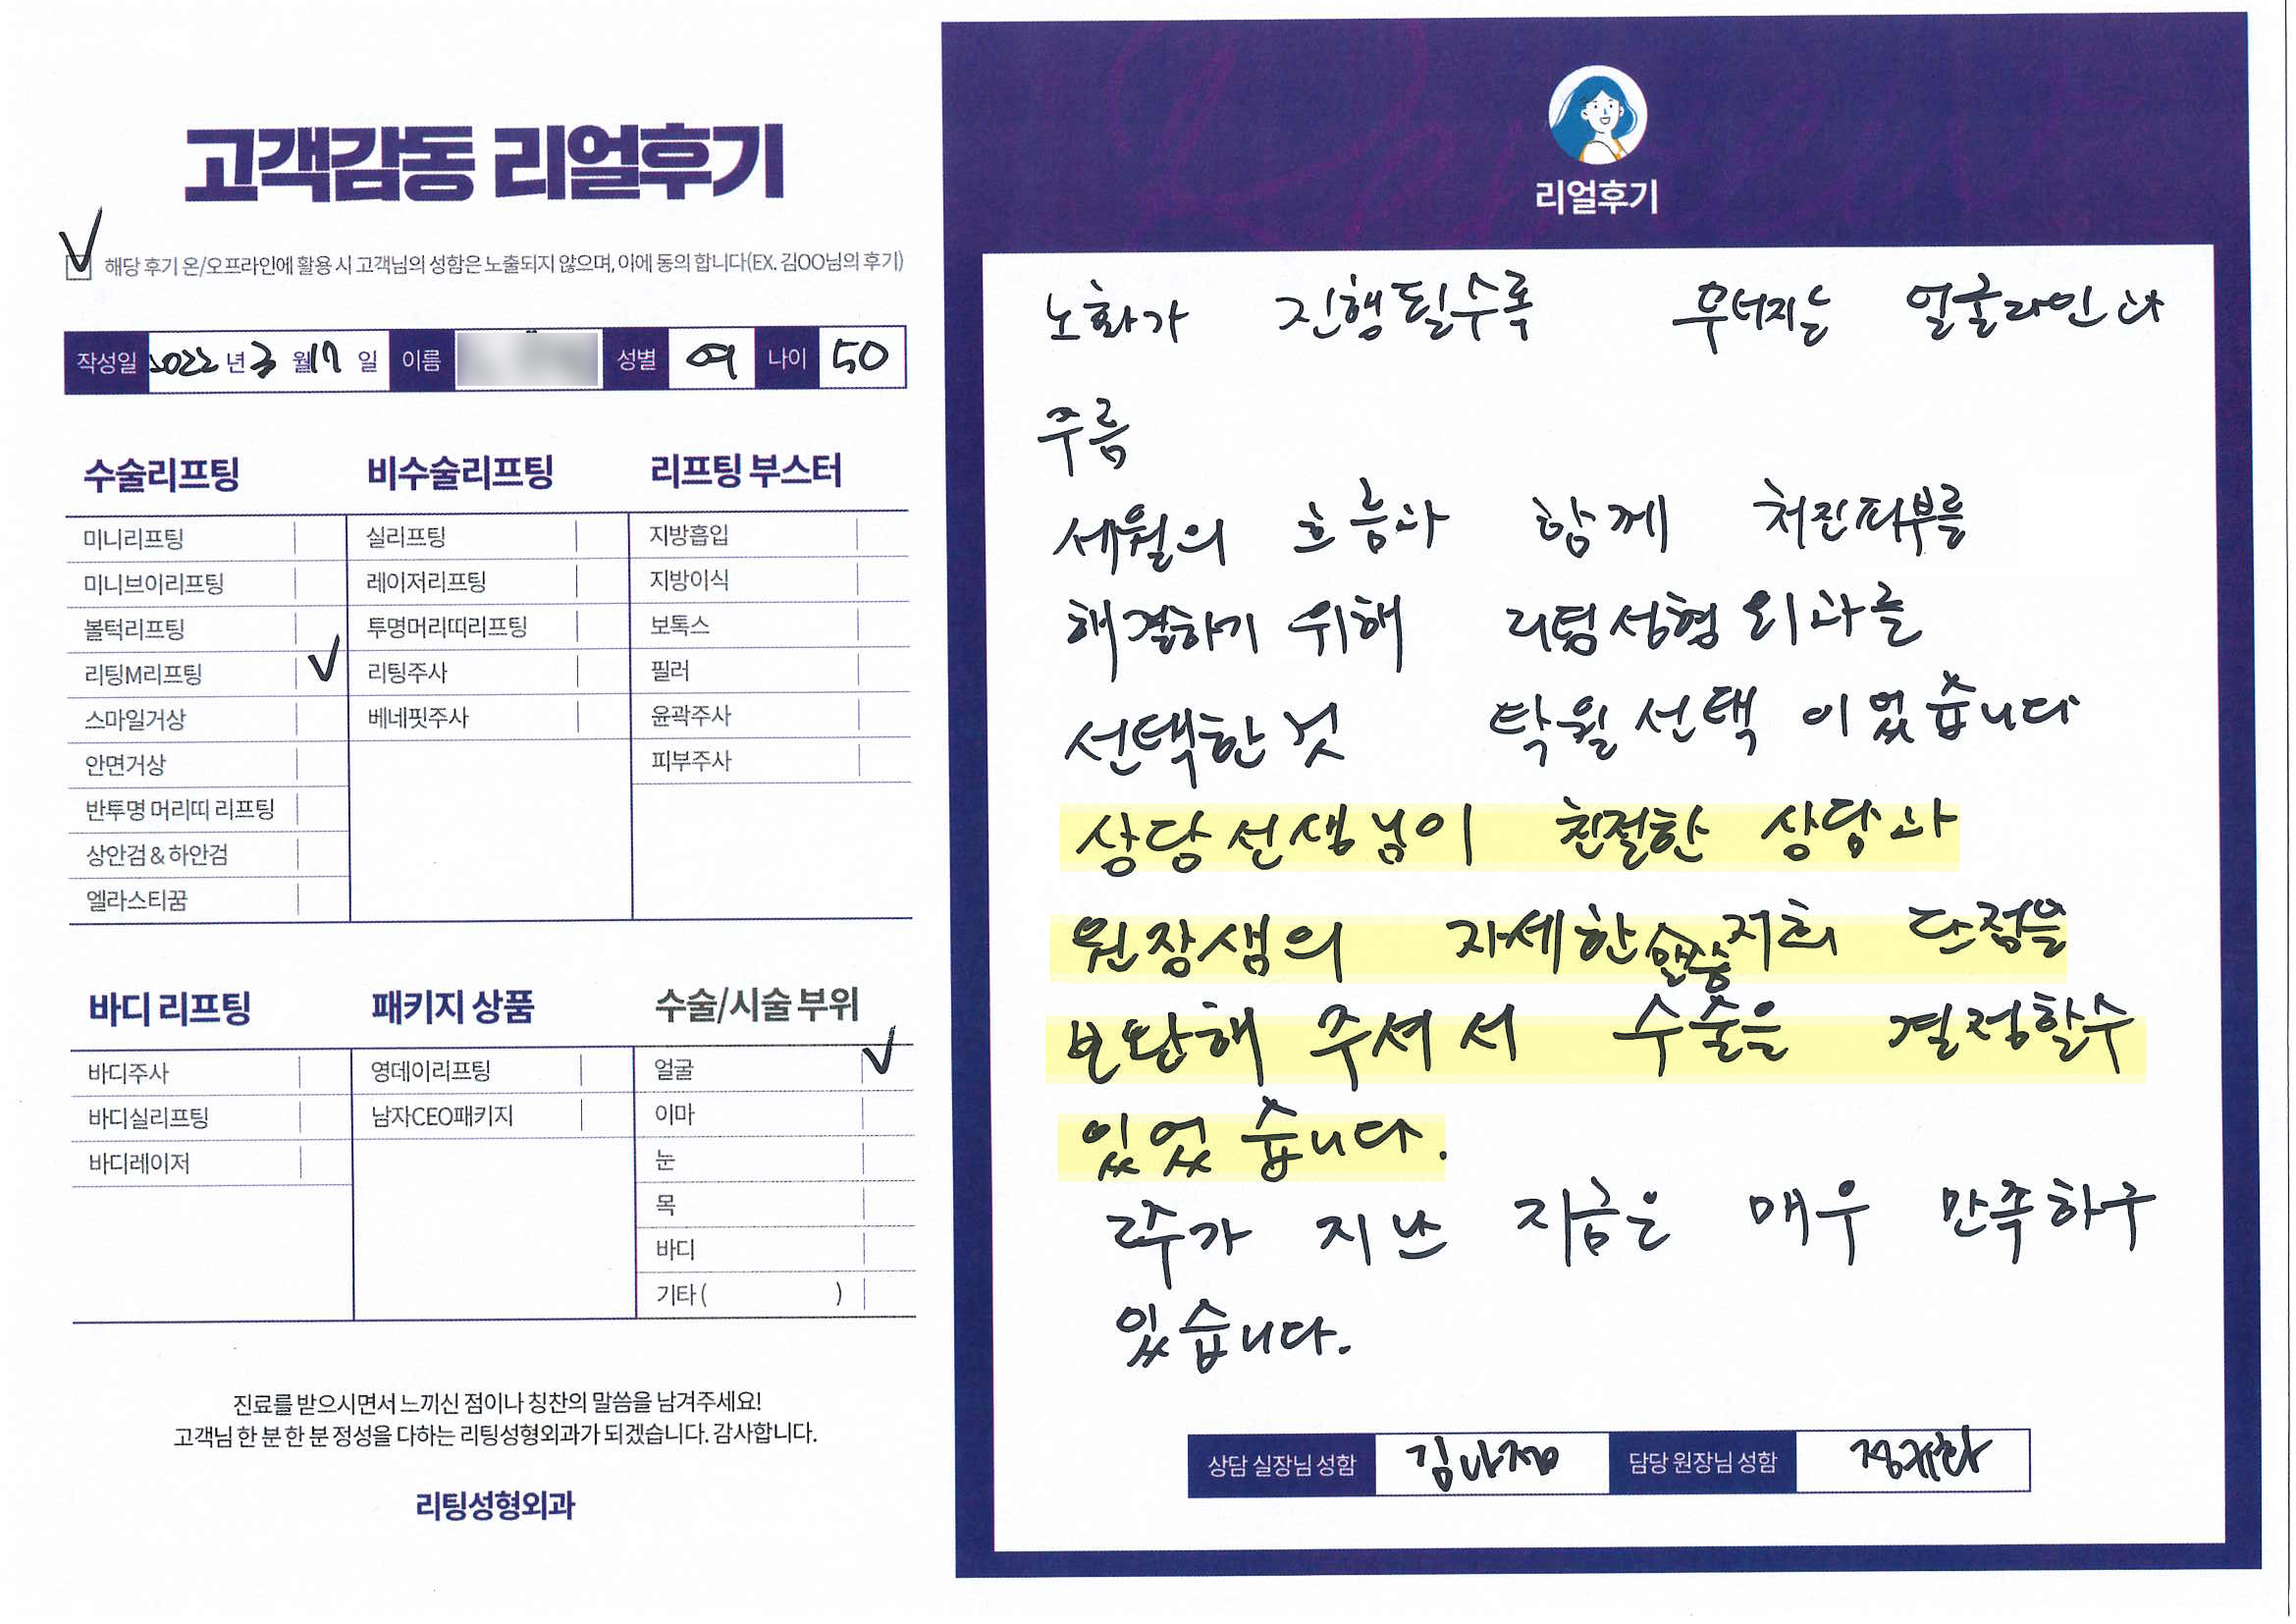 고객감동 리얼후기
해당 후기 온/오프라인에 활용 시 고객님의 성함은 노출되지 않으며, 이에 동의 합니다(EX. 김OO님의 후기)
작성일 2022 년 3 월 17 일 이름 성별 여 나이 50
수술리프팅
미니리프팅
미니브이리프팅
볼턱리프팅
리팅M리프팅
스마일거상
안면거상
반투명 머리띠 리프팅
상안검 & 하안검
엘라스티꿈
비수술리프팅
실리프팅
레이저리프팅
투명머리띠리프팅
리팅주사
베네핏주사
리프팅 부스터
지방흡입
지방이식
보톡스
필러
윤곽주사
피부주사
바디 리프팅
바디주사
바디실리프팅
바디레이저
패키지 상품
영데이리프팅
남자CEO패키지
수술/시술 부위
얼굴
이마
눈
목
바디
기타 ( )
진료를 받으시면서 느끼신 점이나 칭찬의 말씀을 남겨주세요!
고객님 한 분 한 분 정성을 다하는 리팅성형외과가 되겠습니다. 감사합니다.
리팅성형외과
리얼후기
노화가 진행될수록 무너지는 얼굴라인과
주름
세월의 흐름과 함께 처진피부를
해결하기 위해 리팅성형외과를
선택한것 탁월선택 이었습니다
상담선생님이 친절한 상담과
원장샘의 자세한 저희 단점을
보완해 주셔서 수술을 결정할수
있었습니다.
2주가 지난 지금은 매우 만족하구
있습니다.
상담 실장님 성함 담당 원장님 성함